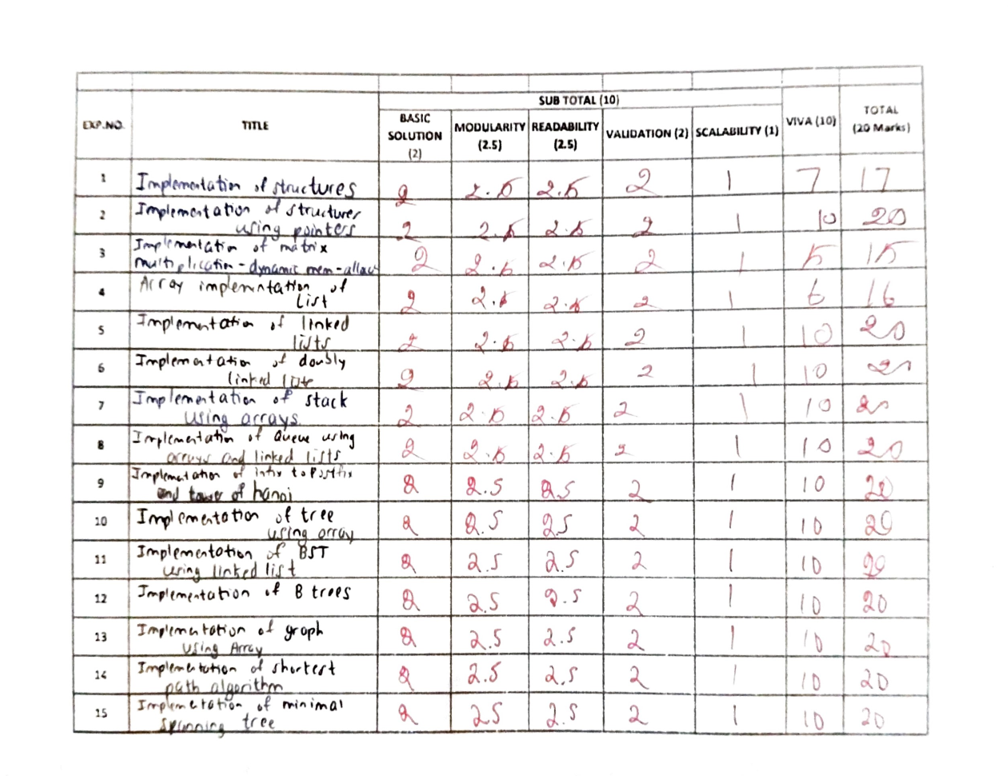 SUB TOTAL (10)
EXP.NO. TITLE BASIC SOLUTION (2) MODULARITY (2.5) READABILITY (2.5) VALIDATION (2) SCALABILITY (1) VIVA (10) TOTAL (20 Marks)
1 Implementation of structures 2 2.5 2.5 2 1 7 17
2 Implementation of structures
using pointers 2 2.5 2.5 2 1 10 20
3 Implementation of matrix
multiplication - dynamic mem-alloc 2 2.5 2.5 2 1 5 15
4 Array implementation of
List 2 2.5 2.5 2 1 6 16
5 Implementation of linked
lists 2 2.5 2.5 2 1 10 20
6 Implementation of doubly
linked lists 2 2.5 2.5 2 1 10 20
7 Implementation of stack
using arrays 2 2.5 2.5 2 1 10 20
8 Implementation of Queue using
arrays and linked lists 2 2.5 2.5 2 1 10 20
9 Implementation of infix to Postfix
and tower of hanoi 2 2.5 2.5 2 1 10 20
10 Implementation of tree
using array 2 2.5 2.5 2 1 10 20
11 Implementation of BST
using linked list 2 2.5 2.5 2 1 10 20
12 Implementation of B trees 2 2.5 2.5 2 1 10 20
13 Implementation of graph
using Array 2 2.5 2.5 2 1 10 20
14 Implementation of shortest
path algorithm 2 2.5 2.5 2 1 10 20
15 Implementation of minimal
spanning tree 2 2.5 2.5 2 1 10 20